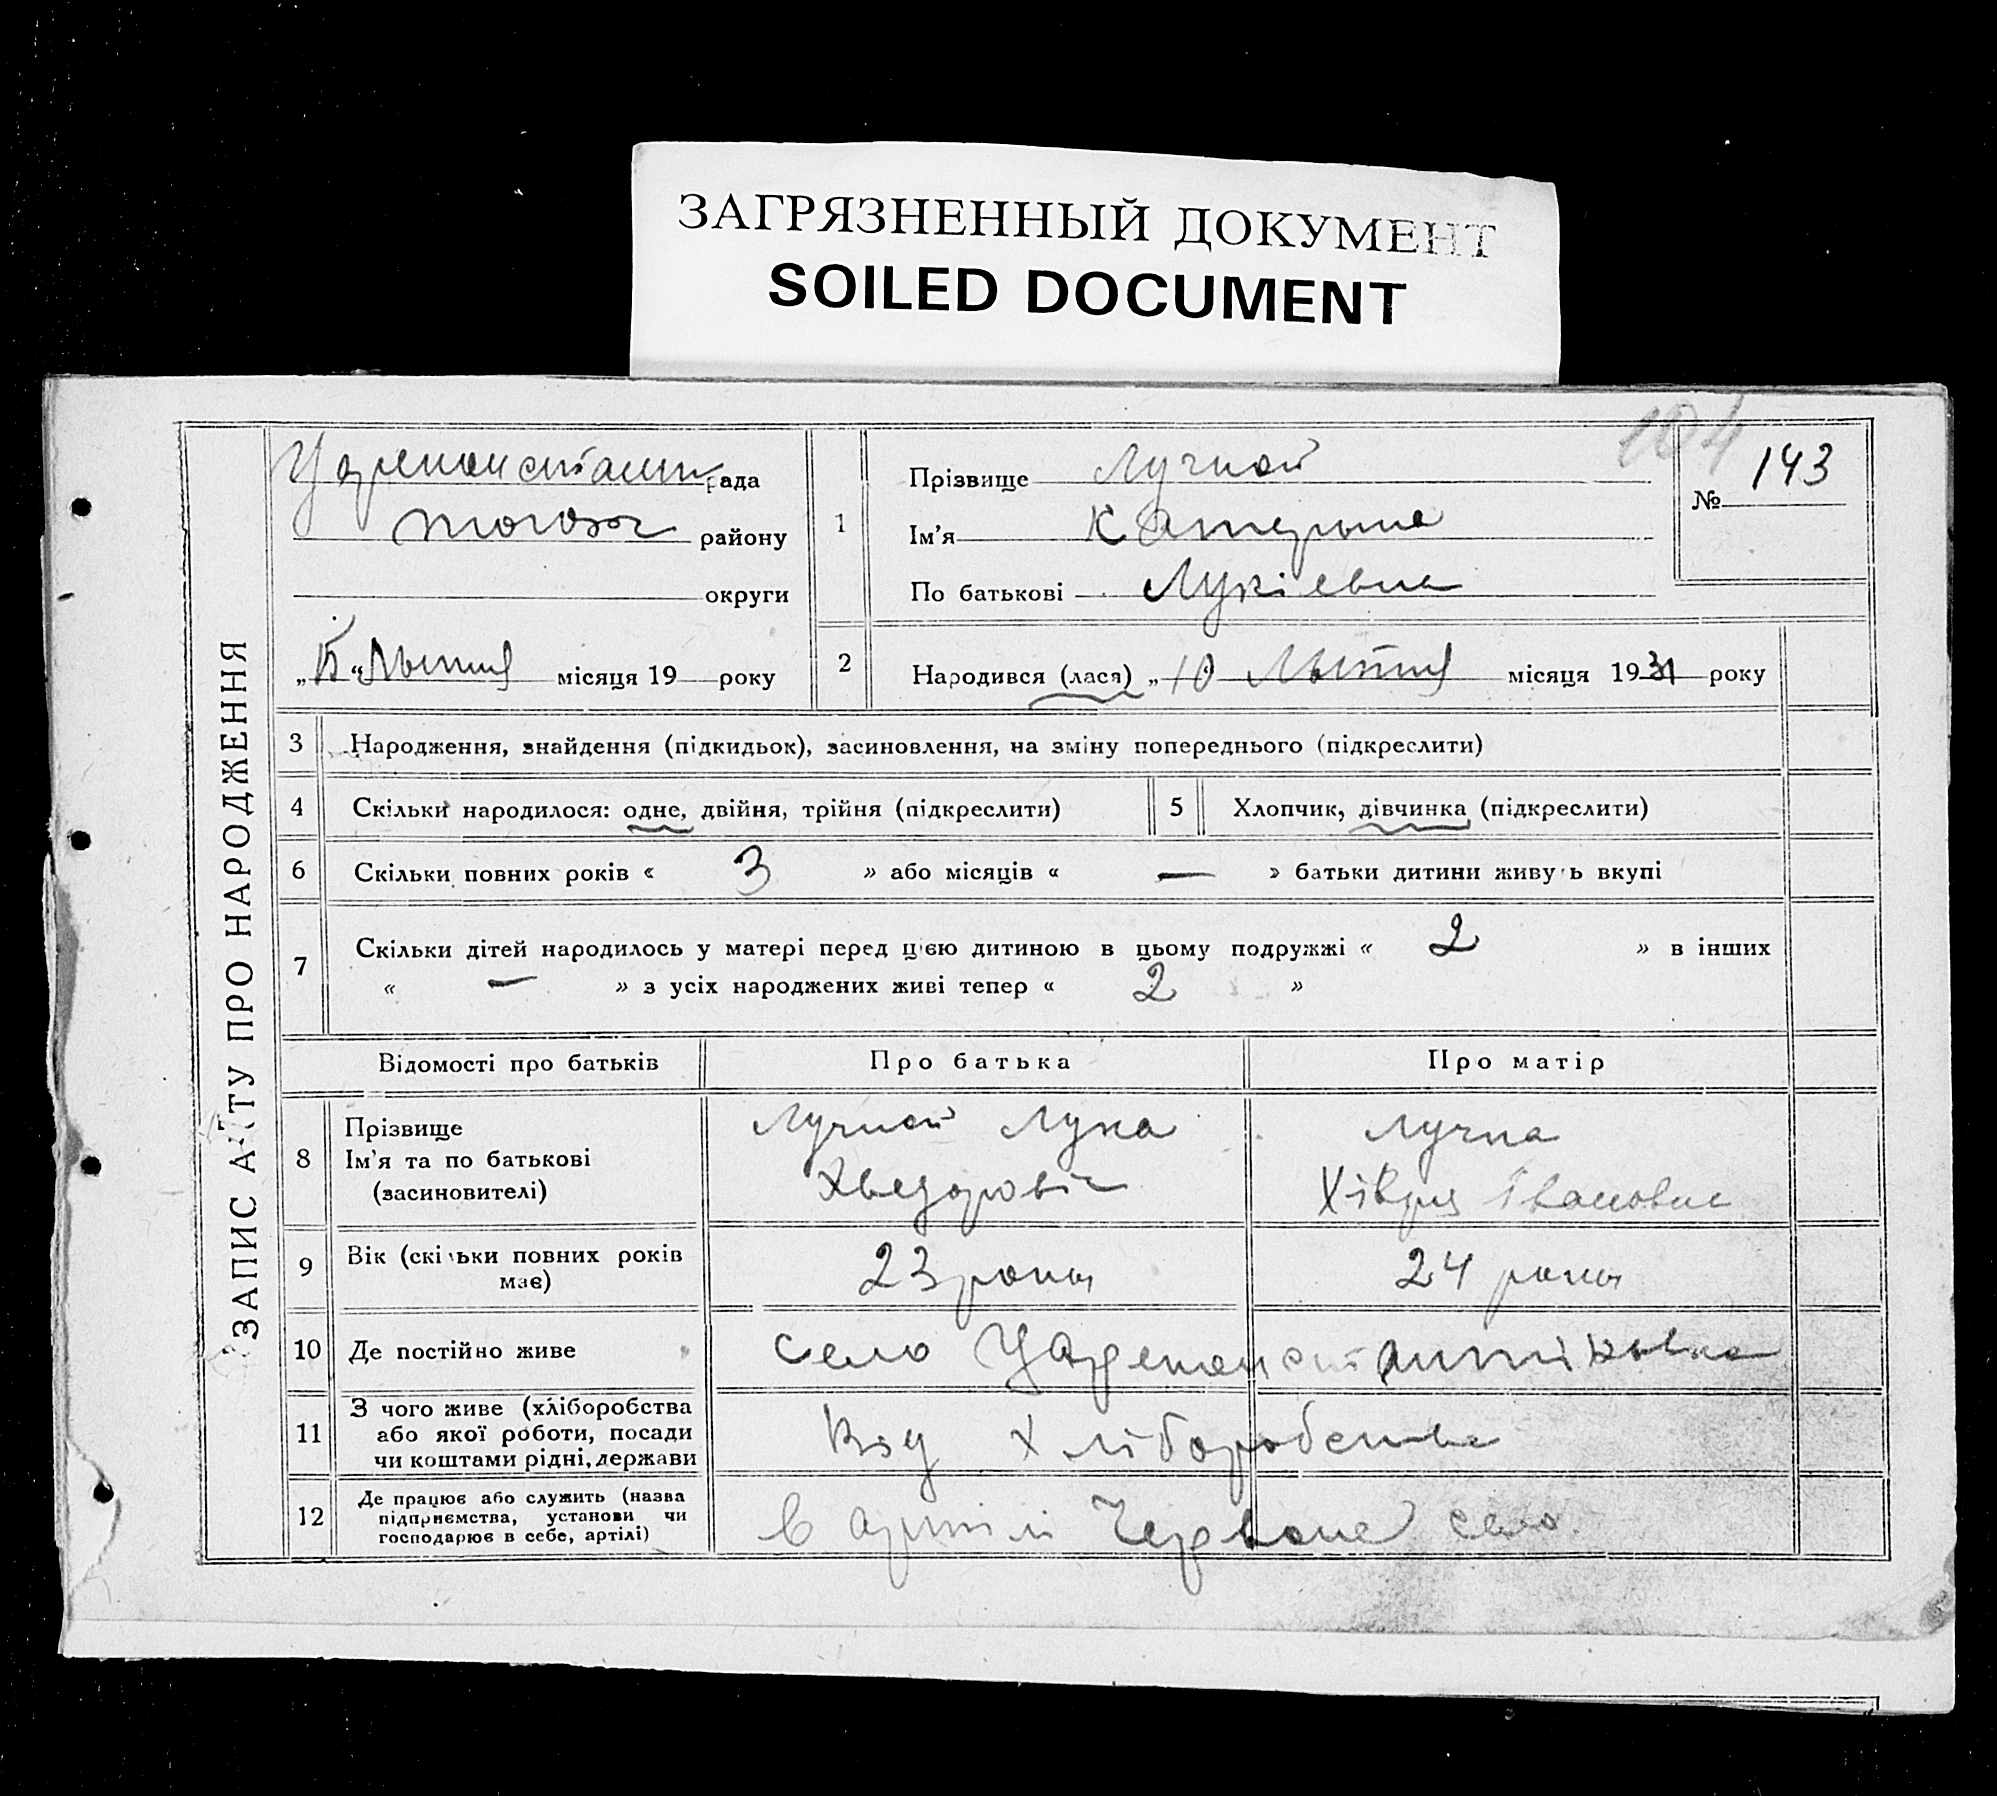 ЗАГРЯЗНЕННЫЙ ДОКУМЕНТ
SOILED DOCUMENT
104
ЗАПИС АКТУ ПРО НАРОДЖЕННЯ
Цареконстант рада
району
округи
„15“ Лютия місяця 19 року
1
Прізвище Лучной
Ім'я Катерина
По батькові Лукіевна
№ 143
2 Народився (лася) „10 Лютия місяця 1931 року
3 Народження, знайдення (підкидьок), засиновлення, на зміну попереднього (підкреслити)
4 Скільки народилося: одне, двійня, трійня (підкреслити) 5 Хлопчик, дівчинка (підкреслити)
6 Скільки повних років « 3 » або місяців « — » батьки дитини живуть вкупі
7 Скільки дітей народилось у матері перед цією дитиною в цьому подружжі « 2 » в інших
« — » з усіх народжених живі тепер « 2 »
Відомості про батьків Про батька Про матір
8 Прізвище
Ім'я та по батькові
(засиновителі)
Лучной Лука
Хведоровіч
Лучна
Хівря Івановна
9 Вік (скільки повних років
має)
23 рока 24 рока
10 Де постійно живе село Цареконстантіновка
11 З чого живе (хліборобства
або якої роботи, посади
чи коштами рідні, держави
від хліборобства
12 Де працює або служить (назва
підприємства, установи чи
господарює в себе, артілі)
в артілі Червоне село